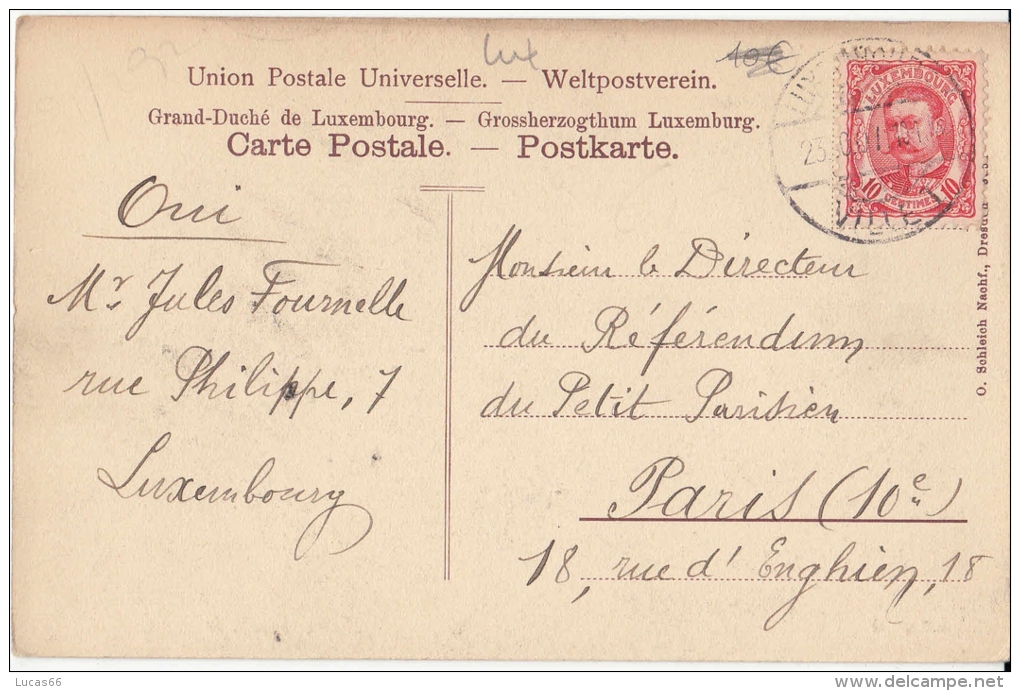 lux
10€
Union Postale Universelle. — Weltpostverein.
Grand-Duché de Luxembourg. — Grossherzogthum Luxemburg.
Carte Postale. — Postkarte.
LUXEMBOURG
10 CENTIMES 10
VILLE
Oui
Mr. Jules Fournelle
rue Philippe, 7
Luxembourg
Monsieur le Directeur
du Référendum
du Petit Parisien
Paris (10e)
18, rue d'Enghien, 18
O. Schleich Nachf., Dresden
Lucas66
delcampe.net